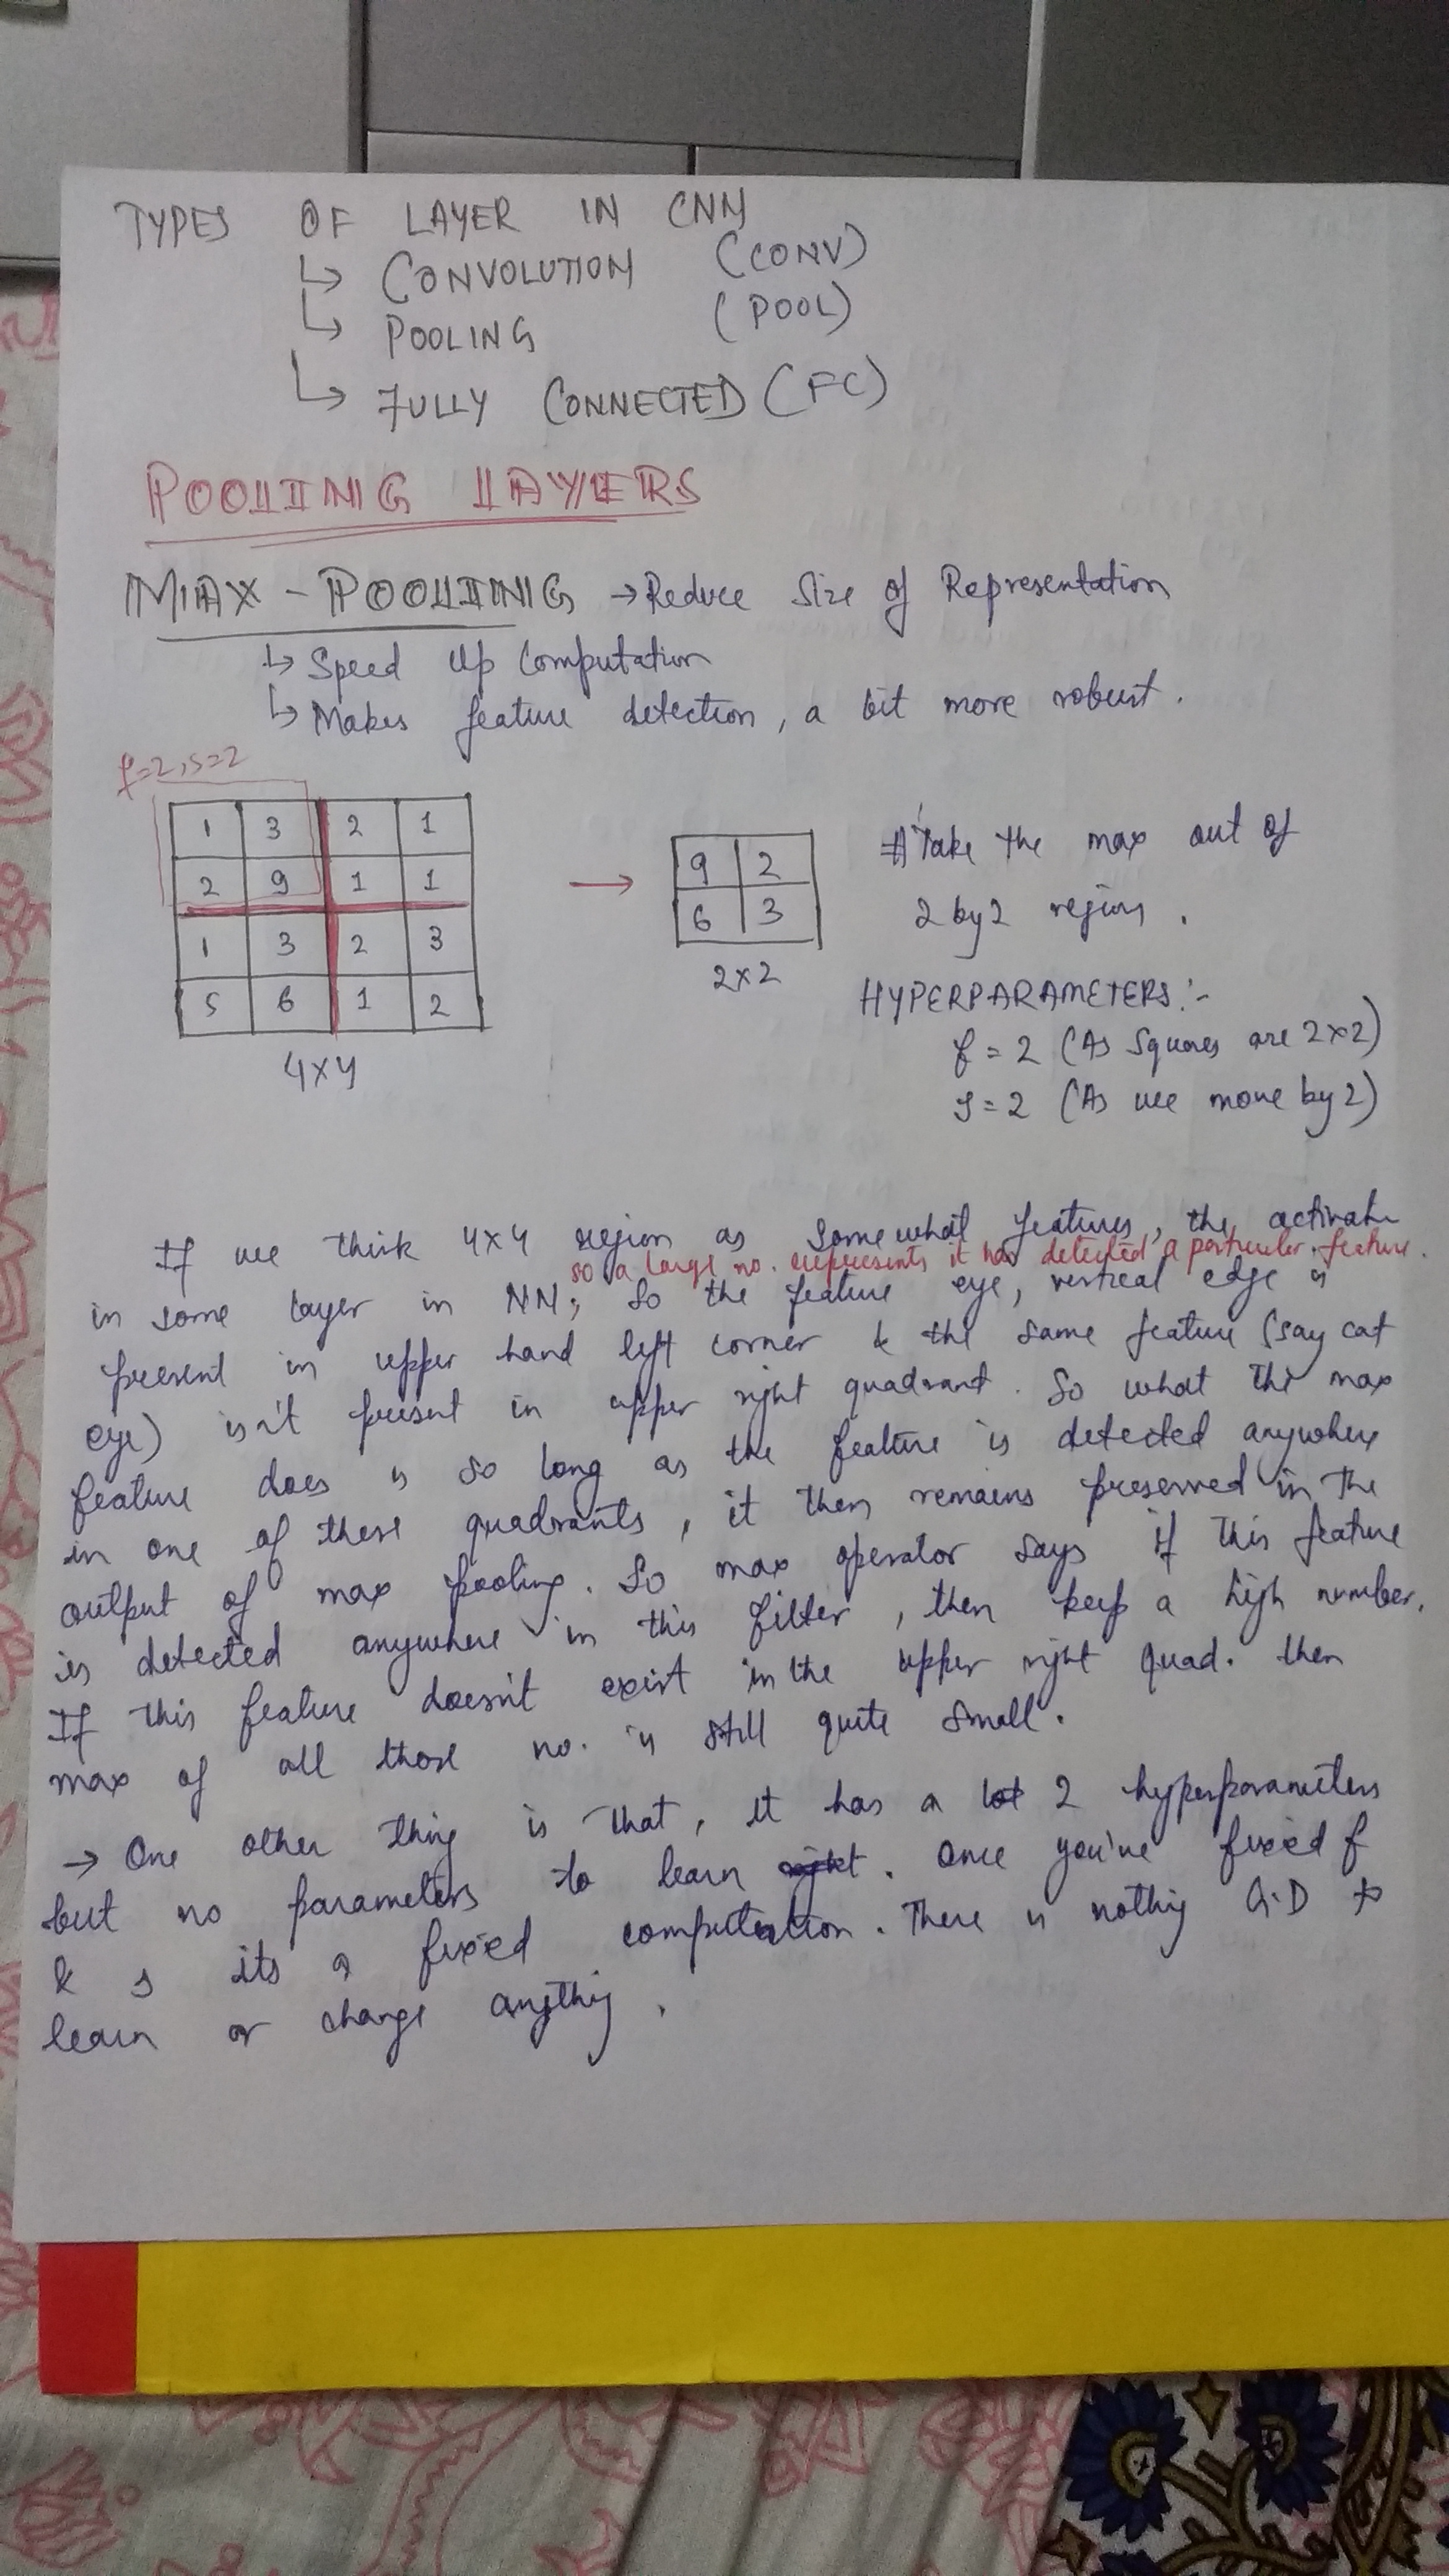 TYPES OF LAYER IN CNN
↳ CONVOLUTION (CONV)
↳ POOLING (POOL)
↳ FULLY CONNECTED (FC)
POOLING LAYERS
MAX-POOLING → Reduce Size of Representation
↳ Speed Up Computation
↳ Makes feature detection, a bit more robust.
f=2, s=2
1 3 2 1
2 9 1 1
1 3 2 3
5 6 1 2
4x4
→
9 2
6 3
2x2
# Take the max out of
2 by 2 region.
HYPERPARAMETERS:-
f = 2 (As Squares are 2x2)
s = 2 (As we move by 2)
If we think 4x4 region as somewhat features, the activatn
so a large no. represents it has detected a particular feature.
in some layer in NN; So the feature eye, vertical edge is
present in upper hand left corner & the same feature (say cat
eye) isn't present in upper right quadrant. So what the max
feature does is so long as the feature is detected anywhere
in one of these quadrants, it then remains preserved in the
output of max pooling. So max operator says if this feature
is detected anywhere in this filter, then keep a high number.
If this feature doesn't exist in the upper right quad. then
max of all those no. is still quite small.
→ One other thing is that, it has a 2 hyperparameters
but no parameters to learn. Once you've fixed f
& s its a fixed computation. There is nothing G.D to
learn or change anything.